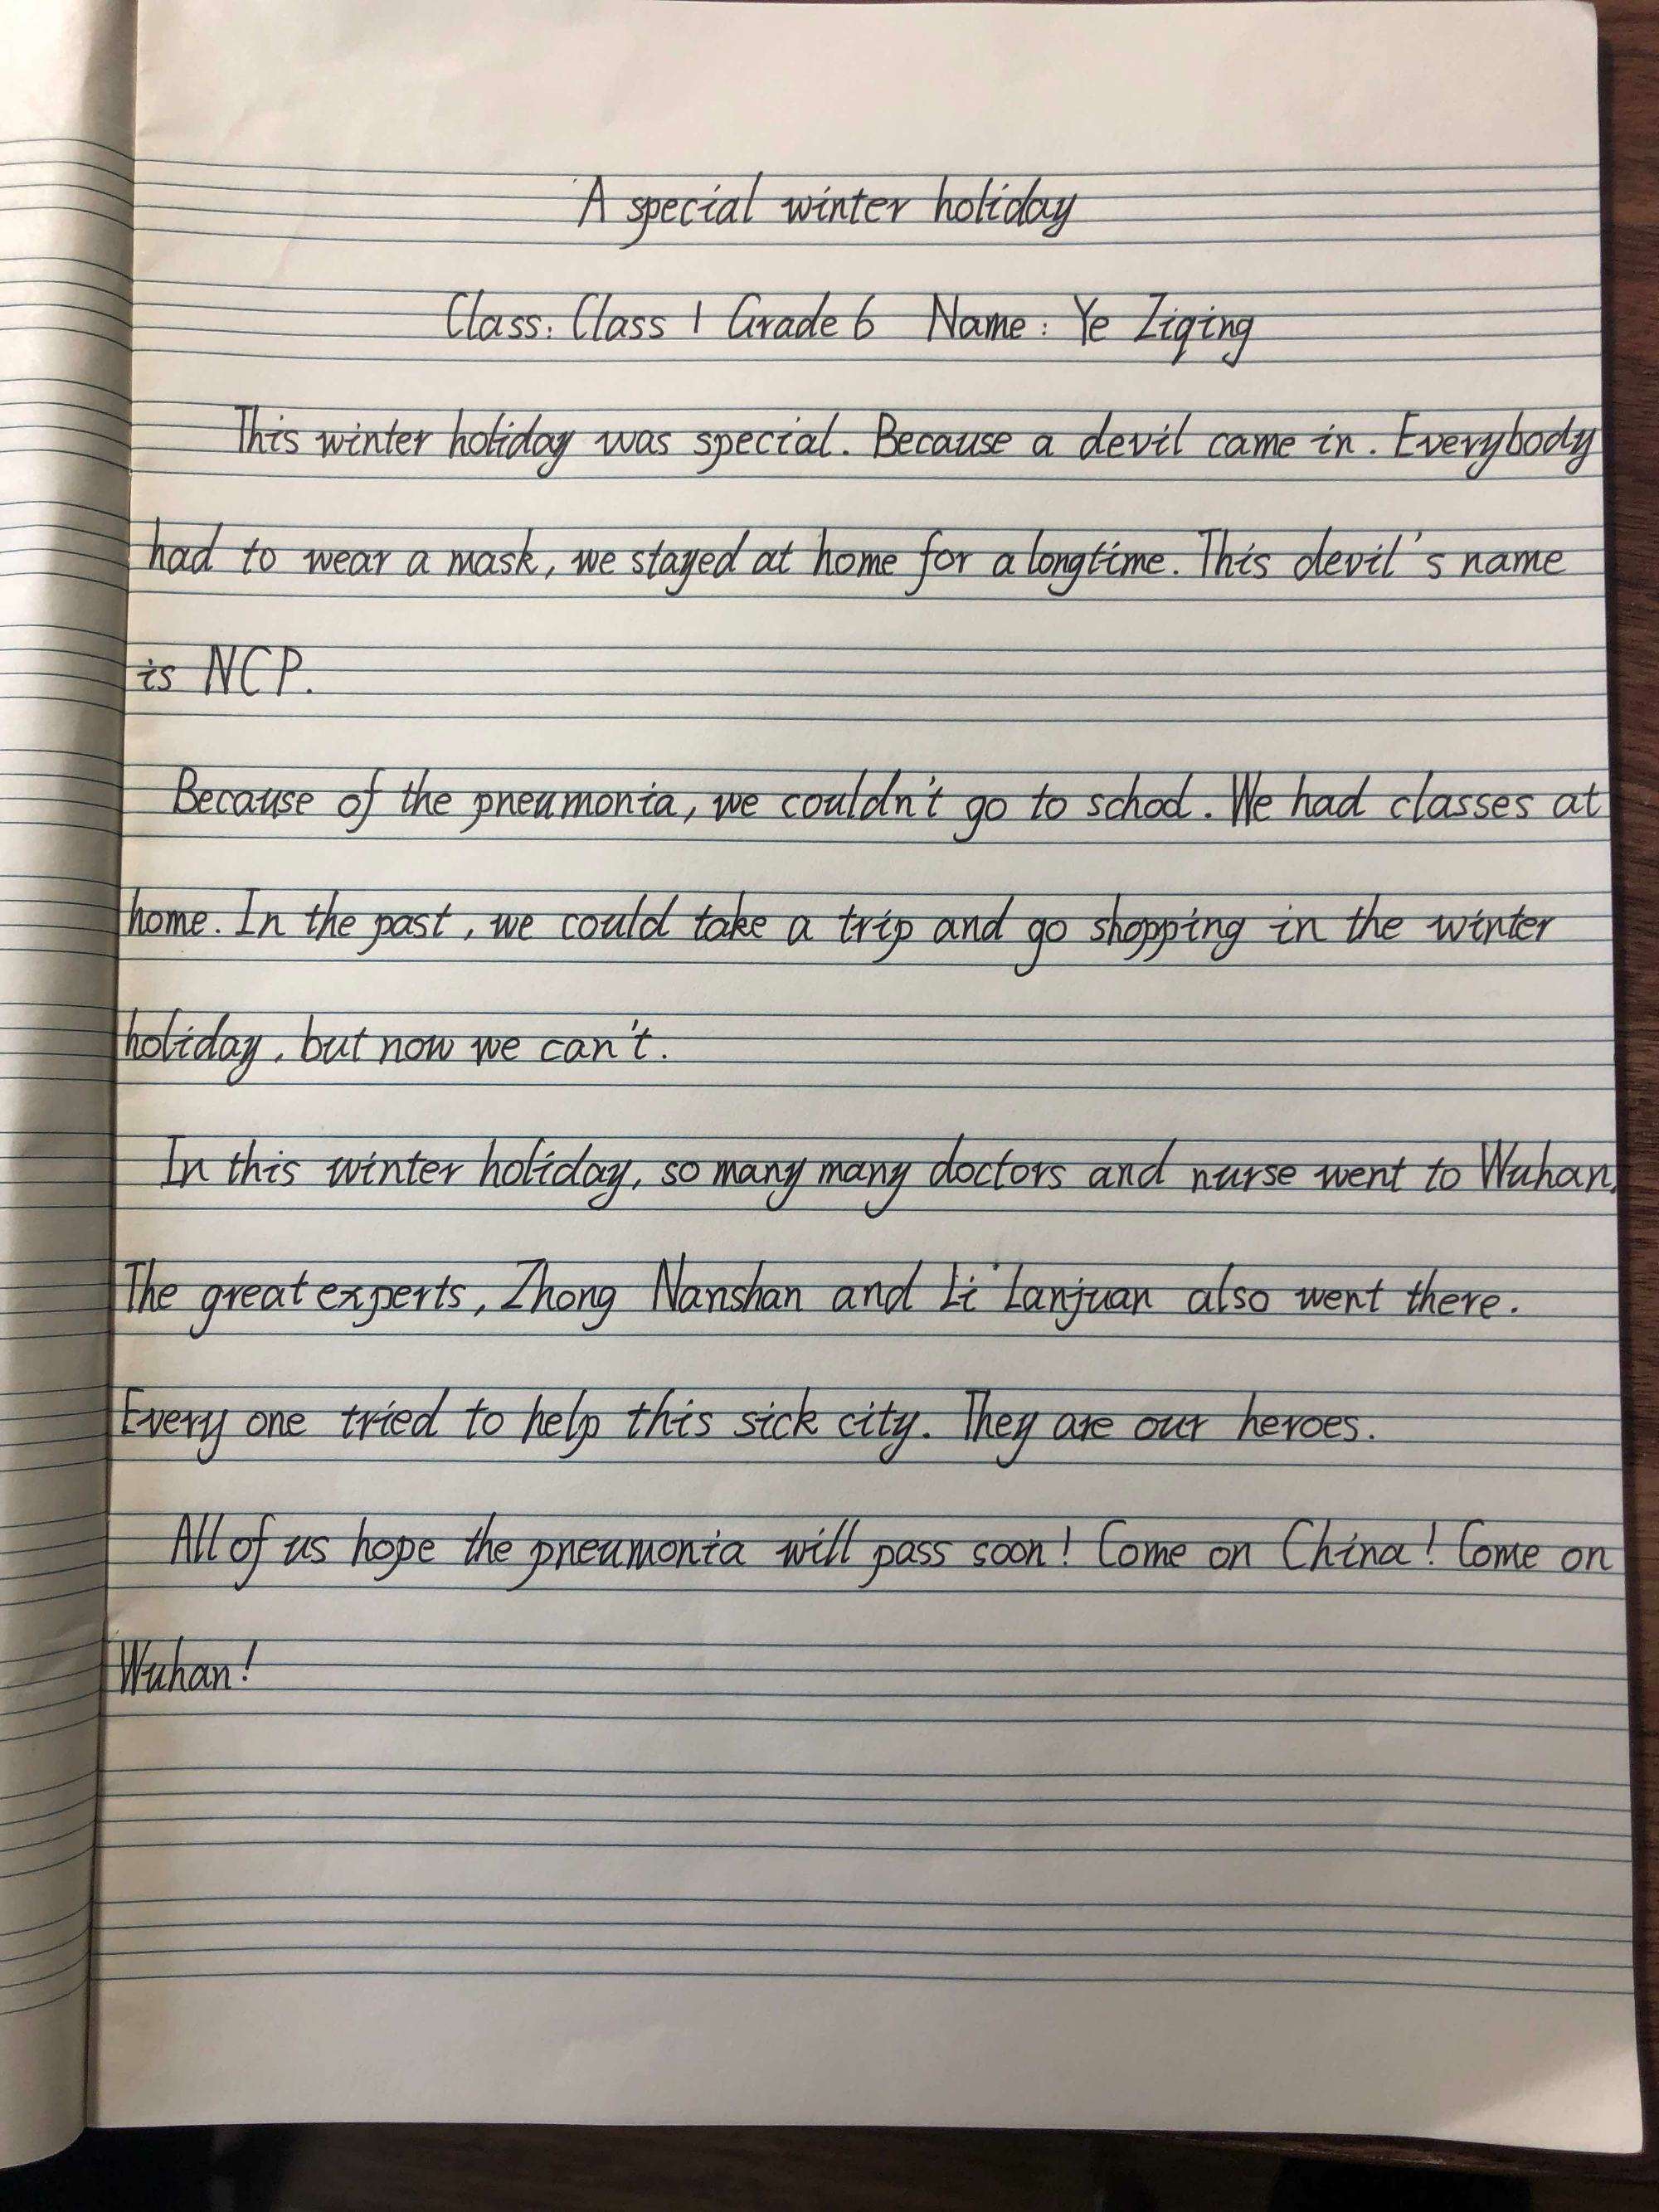 A special winter holiday
Class: Class 1 Grade 6 Name: Ye Ziqing
This winter holiday was special. Because a devil came in. Everybody
had to wear a mask, we stayed at home for a longtime. This devil's name
is NCP.
Because of the pneumonia, we couldn't go to school. We had classes at
home. In the past, we could take a trip and go shopping in the winter
holiday, but now we can't.
In this winter holiday, so many many doctors and nurse went to Wuhan.
The great experts, Zhong Nanshan and Li Lanjuan also went there.
Every one tried to help this sick city. They are our heroes.
All of us hope the pneumonia will pass soon! Come on China! Come on
Wuhan!